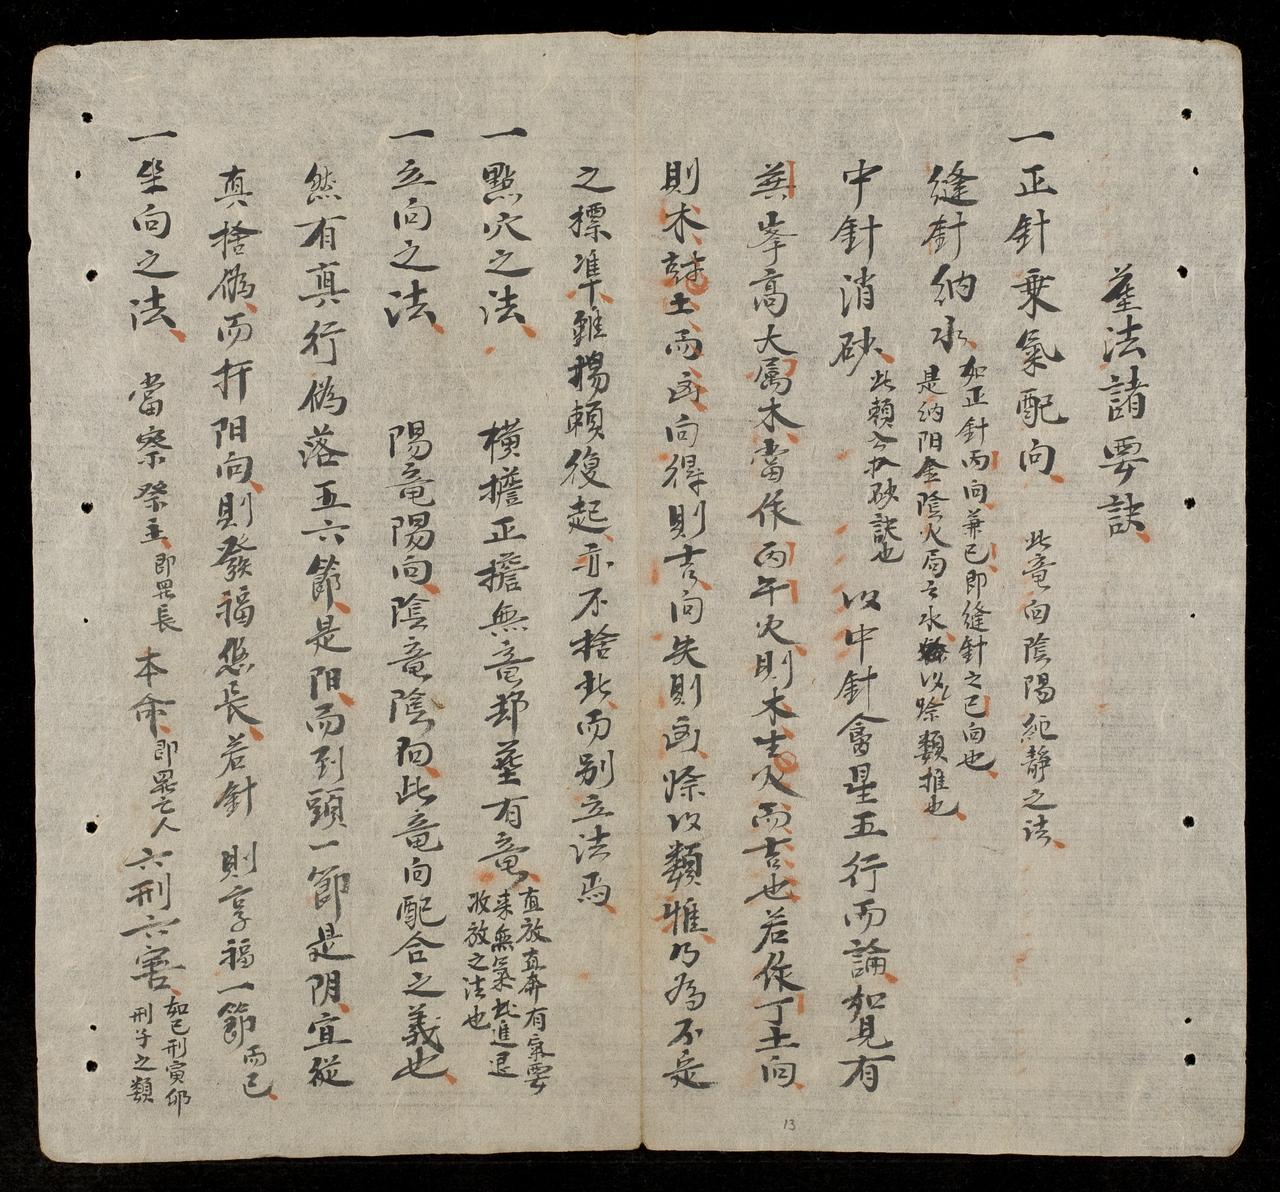 塟法諸要訣
一正針乗氣配向 此竜向陰陽純静之法
縫針納水 如正針丙向兼巳即縫針之巳向也
是納阳金陰火局之水餘以除類推也
中針消砂 此頼公扒砂訣也 以中針會星五行而論如見有
巽峯高大属木當作丙午火則木生火而吉也若作丁土向
則木尅土而凶向得則吉向失則凶除以類推乃為不定
之標準雖楊頼復起亦不捨此而别立法焉
一點穴之法 横擔正擔無竜却塟有竜 直放直奔有氣要
来無氣此進退
收放之法也
一立向之法 陽竜陽向陰竜陰向此竜向配合之義也
然有真行偽落五六節是阳而到頭一節是阴宜從
真捨偽而扦阳向則發福悠長若針 則享福一節而已
一坐向之法 當察祭主 即冢長 本命 即冢亡人 六刑六害 如巳刑寅卯
刑子之類
13